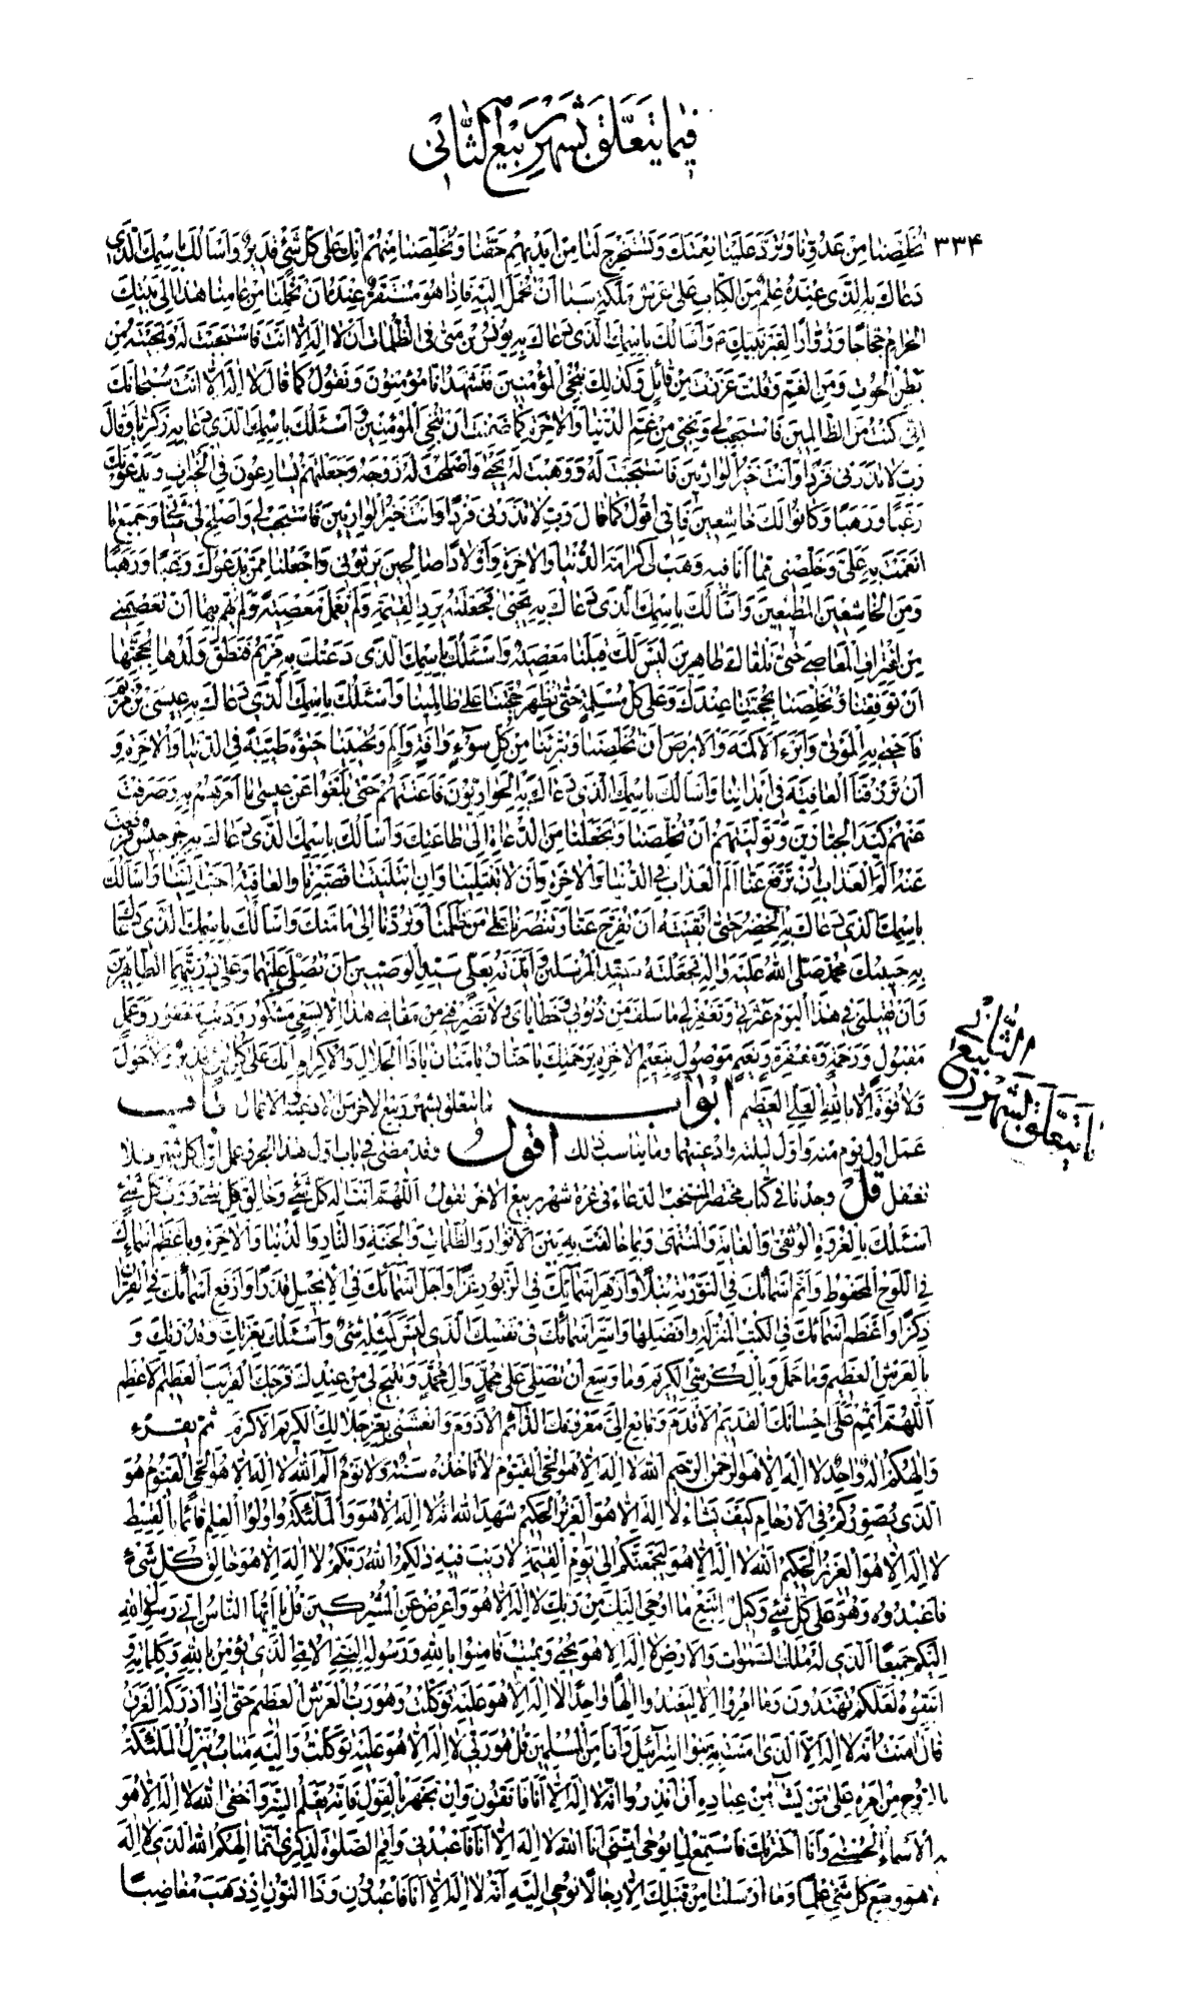 فيما يتعلّق بشهر ربيع الثّاني
٣٣٤
تُخلّصنا من عدوّنا وتردّ علينا نعمتك وتستخرج لنا من ايديهم حقّنا وتخلّصنا منهم انّك على كلّ شيء قدير واسألك باسمك الّذي
دعاك به الّذي عنده علم من الكتاب على عرش ملكة سبا ان تحمل اليه فاذا هو مستقرّ عنده ان تحملنا من عامنا هذا الى بيتك
الحرام حجّاجا وزوّارا لقبر نبيّك ص واسألك باسمك الّذي دعاك به يونس بن متى في الظّلمات ان لا اله الّا انت فاستجبت له ونجّيته من
بطن الحوت ومن الغمّ وقلت عززت من قائل وكذلك ننجي المؤمنين فنشهد انّا مؤمنون ونقول كما قال لا اله الّا انت سبحانك
انّي كنت من الظّالمين فاستجب لي ونجّني من غمّ الدّنيا والاخرة كما ضمنت ان تنجي المؤمنين واسئلك باسمك الّذي دعا به زكريّا وقال
ربّ لا تذرني فردا وانت خير الوارثين فاستجبت له ووهبت له يحيى واصلحت له زوجه وجعلتهم يسارعون في الخيرات ويدعونك
رغبا ورهبا وكانوا لك خاشعين فانّي اقول كما قال ربّ لا تذرني فردا وانت خير الوارثين فاستجب لي واصلح لي شأني وجميع ما
انعمت به عليّ وخلّصني ممّا انا فيه وهب لي كرامة الدّنيا والاخرة واولادا صالحين يرثوني واجعلنا ممّن يدعوك رغبا ورهبا
ومن الخاشعين المطيعين واسألك باسمك الّذي دعاك به يحيى فجعلته يرد القيمة ولم يعمل معصية ولم يهمّ بها ان تعصمني
من اقتراف المعاصي حتّى نلقاك طاهرين ليس لك قبلنا معصية واسئلك باسمك الّذي دعتك به مريم فنطق ولدها بحجّتها
ان توفّقنا وتخلّصنا بحجّتنا عندك وعلى كلّ مسلم حتّى تظهر حجّتنا على ظالمينا واسئلك باسمك الّذي دعاك به عيسى بن مريم
فاحيى به الموتى وابرء الاكمه والابرص ان تخلّصنا وتبرئنا من كلّ سوء وافة والم وتحيينا حيوة طيّبة في الدّنيا والاخرة و
ان ترزقنا العافية في ابداننا واسألك باسمك الّذي دعاك به الحواريّون فاعنتهم حتّى بلّغوا عن عيسى ما امرهم به وصرفت
عنهم كيد الجبّارين وتولّيتهم ان تخلّصنا وتجعلنا من الدّعاة الى طاعتك واسألك باسمك الّذي دعاك به جرجيس فرفعت
عنه الم العذاب ان ترفع عنّا الم العذاب في الدّنيا والاخرة وان لا تبتلينا وان ابتليتنا فصبّرنا والعافية احبّ الينا واسألك
باسمك الّذي دعاك به الخضر حتّى ابقيته ان تفرّج عنّا وتنصرنا على من ظلمنا وتردّنا الى مامنك واسألك باسمك الّذي دعاك
به حبيبك محمّد صلّى اللّه عليه واله فجعلته سيّد المرسلين وايّدته بعليّ سيّد الوصيّين ان تصلّي عليهما وعلى ذرّيتهما الطّاهرين
وان تقيلني في هذا اليوم عثرتي وتغفر لي ما سلف من ذنوبي وخطاياي ولا تصرفني من مقامي هذا الّا بسعي مشكور وذنب مغفور وعمل
مقبول ورحمة ومغفرة ونعيم موصول بنعيم الاخرة برحمتك يا حنّان يا منّان يا ذا الجلال والاكرام انّك على كلّ شيء قدير ولا حول
ولا قوّة الّا باللّه العليّ العظيم ابواب ما يتعلّق بشهر ربيع الاخر من الادعية والاعمال باب
ما يتعلّق بشهر ربيع الثّاني
عمل اوّل يوم منه واوّل ليلته وادعيتهما وما يناسب ذلك اقول وقد مضى في باب اوّل هذا الجزء عمل اوّل كلّ شهر فلا
تغفل قل وجدنا في كتاب مختصر المنتخب الدّعاء في غرّة شهر ربيع الاخر تقول اللّهمّ انت اله كلّ شيء وخالق كلّ شيء وربّ كلّ شيء
اسئلك بالعروة الوثقى والغاية والمنتهى وبما خالفت به بين الانوار والظّلمات والجنّة والنّار والدّنيا والاخرة وباعظم اسمائك
في اللّوح المحفوظ واتمّ اسمائك في التّورية نبلا وازهر اسمائك في الزّبور عزّا واجلّ اسمائك في الانجيل قدرا وارفع اسمائك في القران
ذكرا واعظم اسمائك في الكتب المنزلة وافضلها واسرّ اسمائك في نفسك الّذي ليس كمثله شيء واسئلك بعزّتك وقدرتك و
بالعرش العظيم وما حمل وبالكرسيّ الكريم وما وسع ان تصلّي على محمّد وال محمّد وتبيح لي من عندك فرجك القريب العظيم الاعظم
اللّهمّ اتمم عليّ احسانك القديم الاقدم وتابع اليّ معروفك الدّائم الادوم وانعشني بعزّ جلالك الكريم الاكرم ثمّ تقرء
والهكم اله واحد لا اله الّا هو الرّحمن الرّحيم اللّه لا اله الّا هو الحيّ القيّوم لا تاخذه سنة ولا نوم الم اللّه لا اله الّا هو الحيّ القيّوم هو
الّذي يصوّركم في الارحام كيف يشاء لا اله الّا هو العزيز الحكيم شهد اللّه انّه لا اله الّا هو والملئكة واولوا العلم قائما بالقسط
لا اله الّا هو العزيز الحكيم اللّه لا اله الّا هو ليجمعنّكم الى يوم القيمة لا ريب فيه ذلكم اللّه ربّكم لا اله الّا هو خالق كلّ شيء
فاعبدوه وهو على كلّ شيء وكيل اتّبع ما اوحي اليك من ربّك لا اله الّا هو واعرض عن المشركين قل يا ايّها النّاس انّي رسول اللّه
اليكم جميعا الّذي له ملك السّموات والارض لا اله الّا هو يحيي ويميت فامنوا باللّه ورسوله النّبيّ الامّيّ الّذي يؤمن باللّه وكلماته و
اتّبعوه لعلّكم تهتدون وما امروا الّا ليعبدوا الها واحدا لا اله الّا هو عليه توكّلت وهو ربّ العرش العظيم حتّى اذا ادركه الغرق
قال امنت انّه لا اله الّا الّذي امنت به بنوا اسرائيل وانا من المسلمين قل هو ربّي لا اله الّا هو عليه توكّلت واليه متاب ينزّل الملئكة
بالرّوح من امره على من يشاء من عباده ان انذروا انّه لا اله الّا انا فاتّقون وان تجهر بالقول فانّه يعلم السّرّ واخفى اللّه لا اله الّا هو
له الاسماء الحسنى وانا اخترتك فاستمع لما يوحى انّني انا اللّه لا اله الّا انا فاعبدني واقم الصّلوة لذكري انّما الهكم اللّه الّذي لا اله
الّا هو وسع كلّ شيء علما وما ارسلنا من قبلك الّا رجالا نوحي اليه انّه لا اله الّا انا فاعبدون وذا النّون اذ ذهب مغاضبا